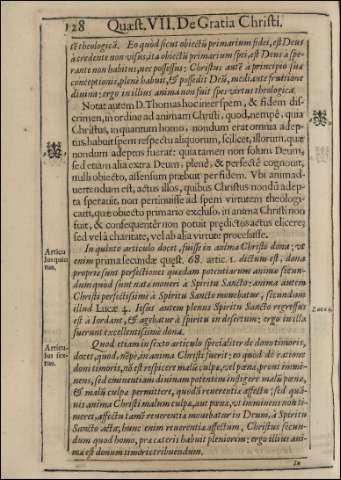 128 Quæst. VII. De Gratia Christi.
tē theologicā. Eo quòd sicut obiectū primarium fidei, est Deus
à credente non visus; ita obiectū primarium spei, est Deus à spe-
rante non habitus, nec possessus: Christus autē à principio suæ
conceptionis, plenè habuit, & possedit Deū, mediante fruitione
diuina: ergo in illius anima non fuit spes virtus theologica.
Notat autem D. Thomas hoc inter spem, & fidem dis-
crimen, in ordine ad animam Christi, quod, nempè, quia
Christus, in quantum homo, nondum erat omnia adep-
tus, habuit spem respectu aliquorum, scilicet, illorum, quæ
nondum adeptus fuerat: quia tamen non solum Deum,
sed etiam alia extra Deum, plenè, & perfectè cognouit,
nulli obiecto, assensum præbuit per fidem. Vbi animad-
uertendum est, actus illos, quibus Christus nondū adep-
ta sperauit, non pertinuisse ad spem virtutem theologi-
cam, quæ obiecto primario excluso, in anima Christi non
fuit, & consequentèr non potuit prædictos actus elicere;
sed vel à charitate, vel ab alia virtute processisse.
Articu
lus quin
tus.
In quinto articulo docet, fuisse in anima Christi dona; vt
enim prima secundæ quæst. 68. artic. 1. dictum est, dona
propriè sunt perfectiones quædam potentiarum animæ secun-
dum quod sunt natæ moueri à Spiritu Sancto: anima autem
Christi perfectissimè à Spiritu Sancto mouebatur, secundum
illud Lucæ 4. Iesus autem plenus Spiritu Sancto regressus
est à Iordane, & agebatur à spiritu in desertum: ergo in illa
fuerunt excellentissimè dona.
Lucæ 4.
Articu-
lus sex-
tus.
Quod etiam in sexto articulo specialitèr de dono timoris,
docet, quod, nēpè, in anima Christi fuerit: eo quòd de ratione
doni timoris, nō est respicere malū culpæ, vel pœnæ, proni immi-
nens, sed eminentiam diuinam potentem infligere malū pœnæ,
& malū culpæ permittere, quodā reuerentiæ affectu: sed quā-
uis anima Christi malum culpæ, aut pœnæ, vt imminens non ti-
meret, affectu tamē reuerentiæ mouebatur in Deum, à Spiritu
Sancto acta; hunc enim reuerentiæ affectum, Christus secun-
dum quod homo, præ cæteris habuit pleniorem: ergo illius ani-
mæ est donum timoris tribuendum.
In